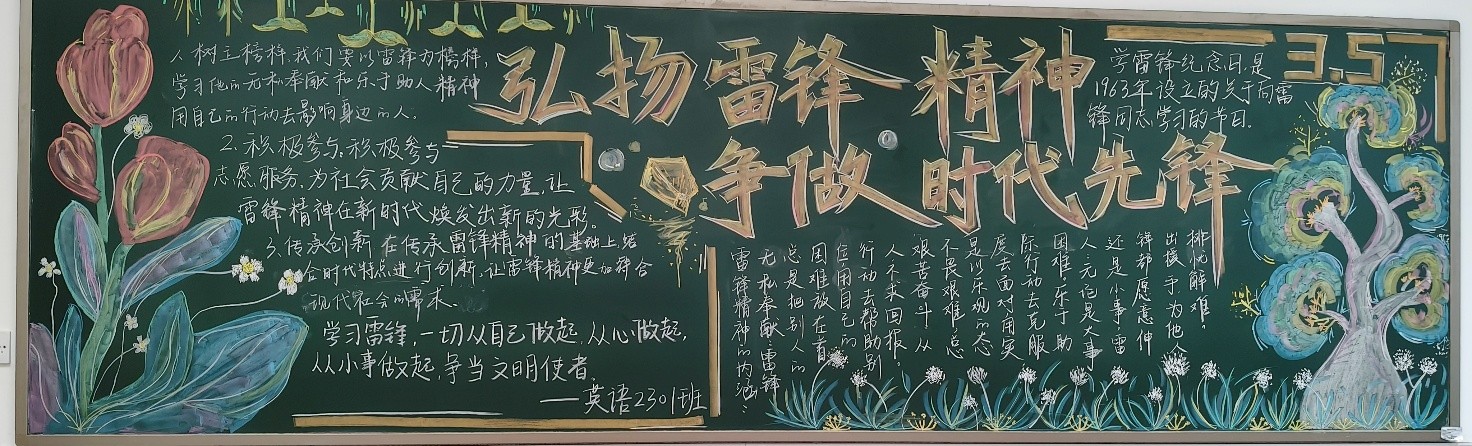 弘扬雷锋精神
争做时代先锋
3.5
学雷锋纪念日,是
1963年设立的关于向雷
锋同志学习的节日。
1、树立榜样,我们要以雷锋为榜样,
学习他的无私奉献和乐于助人精神
用自己的行动去影响身边的人。
2、积极参与:积极参与
志愿服务,为社会贡献自己的力量,让
雷锋精神在新时代焕发出新的光彩。
3、传承创新 在传承雷锋精神的基础上,结
合时代特点进行创新,让雷锋精神更加符合
现代社会的需求。
学习雷锋,一切从自己做起,从心做起,
从小事做起,争当文明使者
——英语2301班
雷锋精神的内涵:
无私奉献:雷锋
总是把别人的
困难放在首
位用自己的
行动去帮助别
人不求回报。
艰苦奋斗:从
不畏艰难,总
是以乐观的态
度去面对,用实
际行动去克服
困难。乐于助
人:无论是大事
还是小事,雷
锋都愿意伸
出援手,为他人
排忧解难。